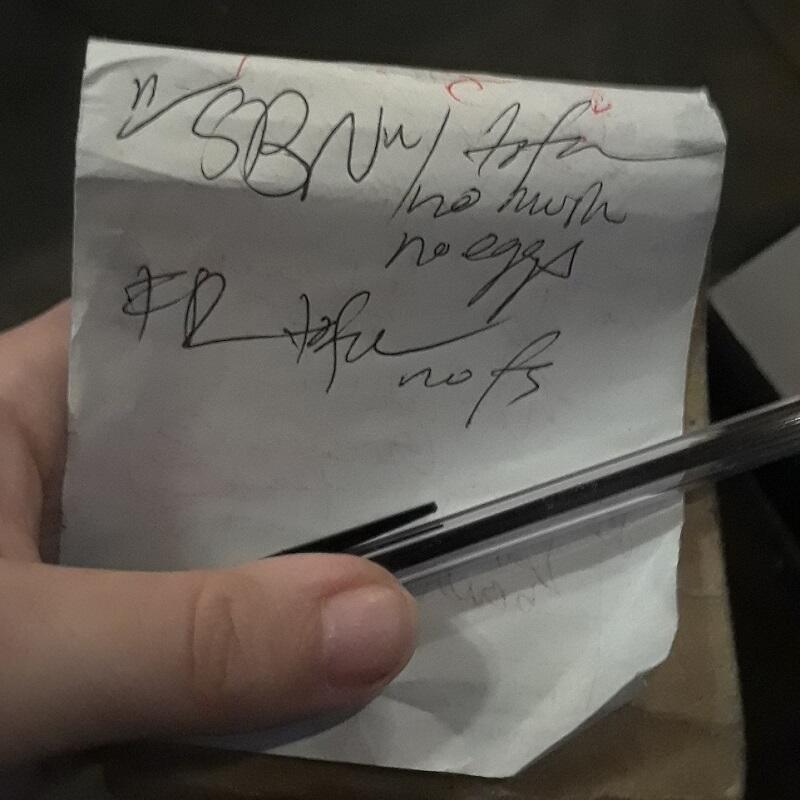 SBN w/ tofu
no mush
no eggs
FR tofu
no fs